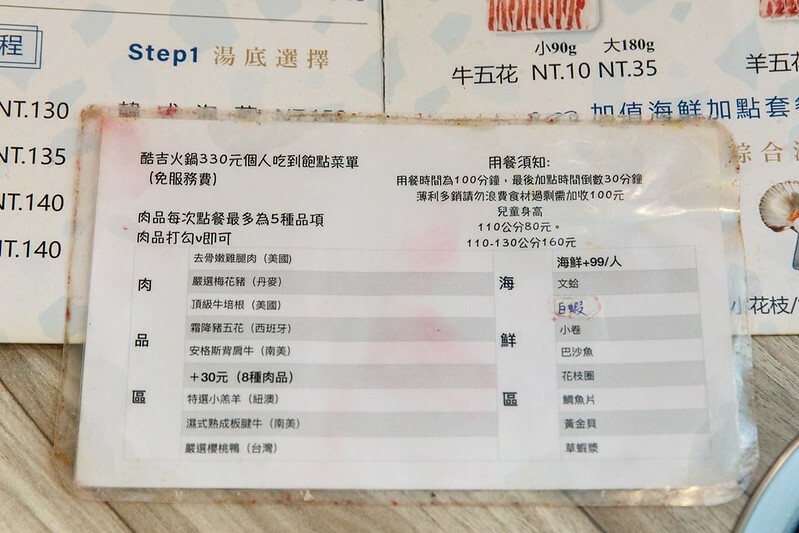 程
Step1 湯底選擇
NT.130
NT.135
NT.140
NT.140
小90g 大180g
牛五花 NT.10 NT.35
羊五花
加值海鮮加點套餐
綜合
小花枝/
酷吉火鍋330元個人吃到飽點菜單
(免服務費)
肉品每次點餐最多為5種品項
肉品打勾v即可
用餐須知:
用餐時間為100分鐘，最後加點時間倒數30分鐘
薄利多銷請勿浪費食材過剩需加收100元
兒童身高
110公分80元。
110-130公分160元
肉品區
去骨嫩雞腿肉（美國）
嚴選梅花豬（丹麥）
頂級牛培根（美國）
霜降豬五花（西班牙）
安格斯背肩牛（南美）
+30元（8種肉品）
特選小羔羊（紐澳）
濕式熟成板腱牛（南美）
嚴選櫻桃鴨（台灣）
海鮮區
海鮮+99/人
文蛤
白蝦
小卷
巴沙魚
花枝圈
鯛魚片
黃金貝
草蝦漿